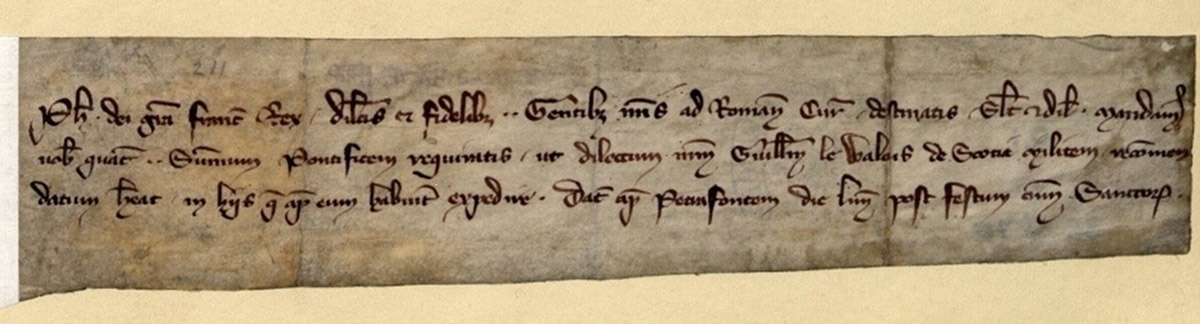 Ph dei gra Franc Rex dilcis et fidelibz .. Gentibz nris ad Romanam Cur destinatis Slt et dil. Mandamꝰ
vob quat .. Summum Pontificem requiratis, ut dilectum nrm Guillm le Walois de Scotia Militem, recomen
datum heat, in hiis q ap eum habuit expedire. Dat ap Petrafontem die lun post festum omm Sanctorꝝ.